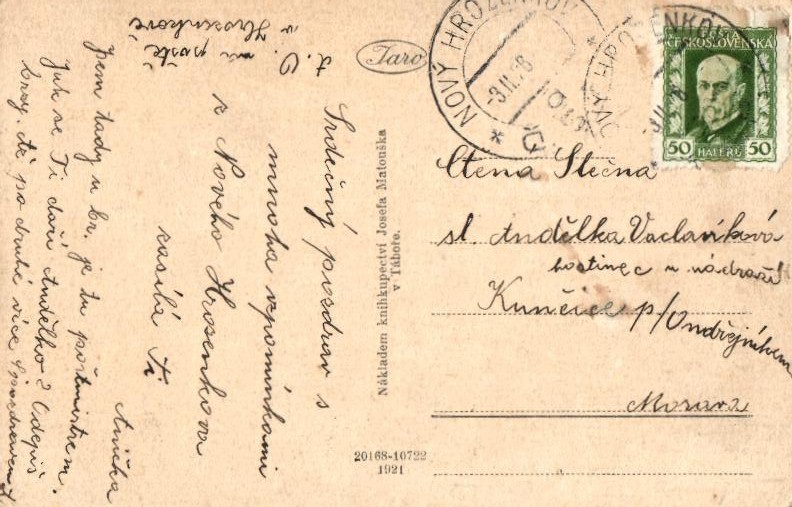 Srdečný pozdrav s
mnoha vzpomínkami
z Nového Hrosenkova
zasílá Ti
Anička
Jsem tady u br. je tu poštmistrem.
Jak se Ti daří Andělko? Odepiš
brzy, té po druhé více
na poště
v Hrosenkově
Taro
Nákladem knihkupectví Josefa Matouška
v Táboře.
20168-10722
1921
NOVÝ HROZENKOV
-3.II.28
NOVÝ HROZENKOV
POŠTA
ČESKOSLOVENSKÁ
50 HALÉŘŮ 50
Ctěná Slečna
sl. Andělka Václavíková
hostinec u nádraží
Kunčice p/Ondřejníkem
Morava